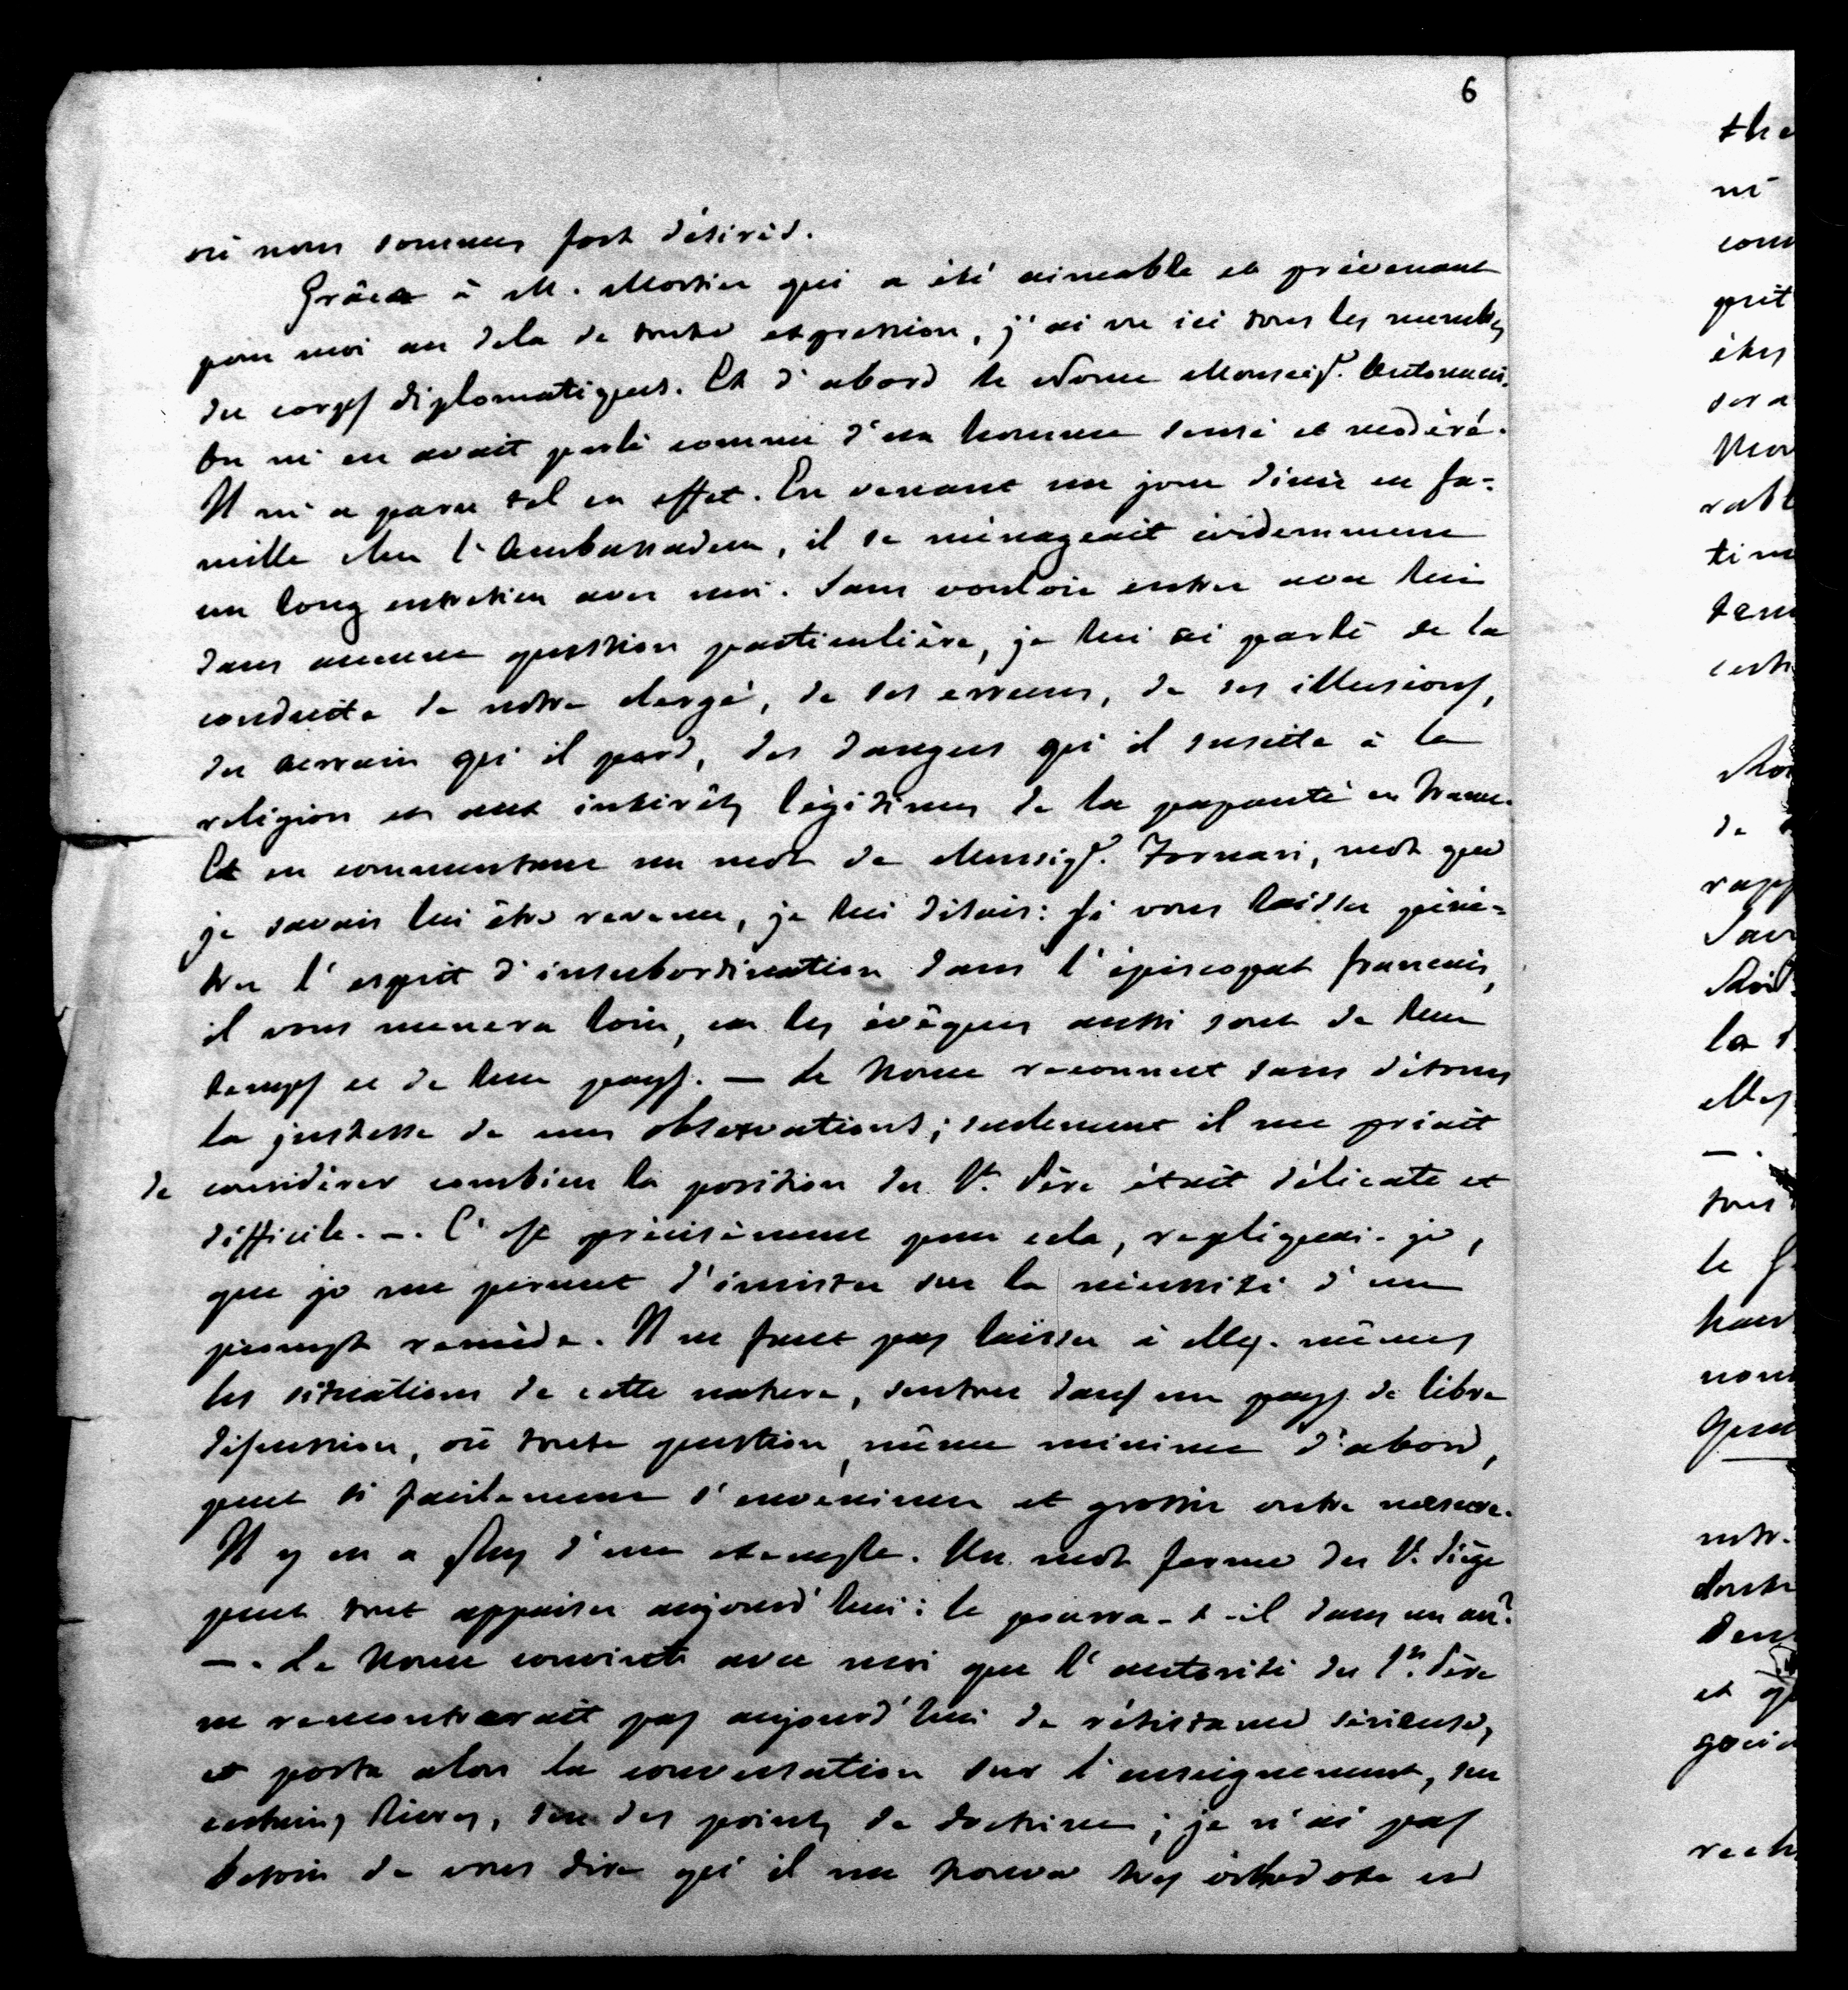 6
où nous sommes fort désirés.
Grâce à M. Mortier qui a été aimable et prévenant
pour moi au dela de toute expression, j'ai vu ici tous les membres
du corps diplomatique. Et d'abord le Nonce Monseigr. Antonucci.
On m'en avait parlé comme d'un homme sensé et modéré.
Il m'a paru tel en effet. En venant un jour diner en fa-
mille chez l'Ambassadeur, il se ménageait évidemment
un long entretien avec moi. Sans vouloir entrer avec lui
dans aucune question particulière, je lui ai parlé de la
conduite de notre clergé, de ses erreurs, de ses illusions,
du terrain qu'il perd, des dangers qu'il suscite à la
religion et aux intérêts légitimes de la papauté en France.
Et en commentant un mot de Monsigr. Fornari, mot que
je savais lui être revenu, je lui disais: si vous laissez péné-
trer l'esprit d'insubordination dans l'épiscopat francais,
il vous menera loin, car les évêques aussi sont de leur
temps et de leur pays. — Le Nonce reconnut sans détours
la justesse de mes observations; seulement il me priait
de considérer combien la position du St. Père était délicate et
difficile. —. C'est précisément pour cela, repliquai-je,
que je me permet d'insister sur la nécessité d'un
prompt remède. Il ne faut pas laisser à elles-mêmes
les situations de cette nature, surtout dans un pays de libre
discussion, où toute question, même minime d'abord,
peut si facilement s'envenimer et grossir outre mesure.
Il y en a plus d'un exemple. Un mot ferme du St. Siège
peut tout appaiser aujourd'hui: le pourra-t-il dans un an?
—. Le Nonce convint avec moi que l'autorité du St. Père
ne rencontrerait pas aujourd'hui de résistance sérieuse,
et porta alors la conversation sur l'enseignement, sur
certains livres, sur des points de doctrine; je n'ai pas
besoin de vous dire qu'il me trouva très orthodoxe en